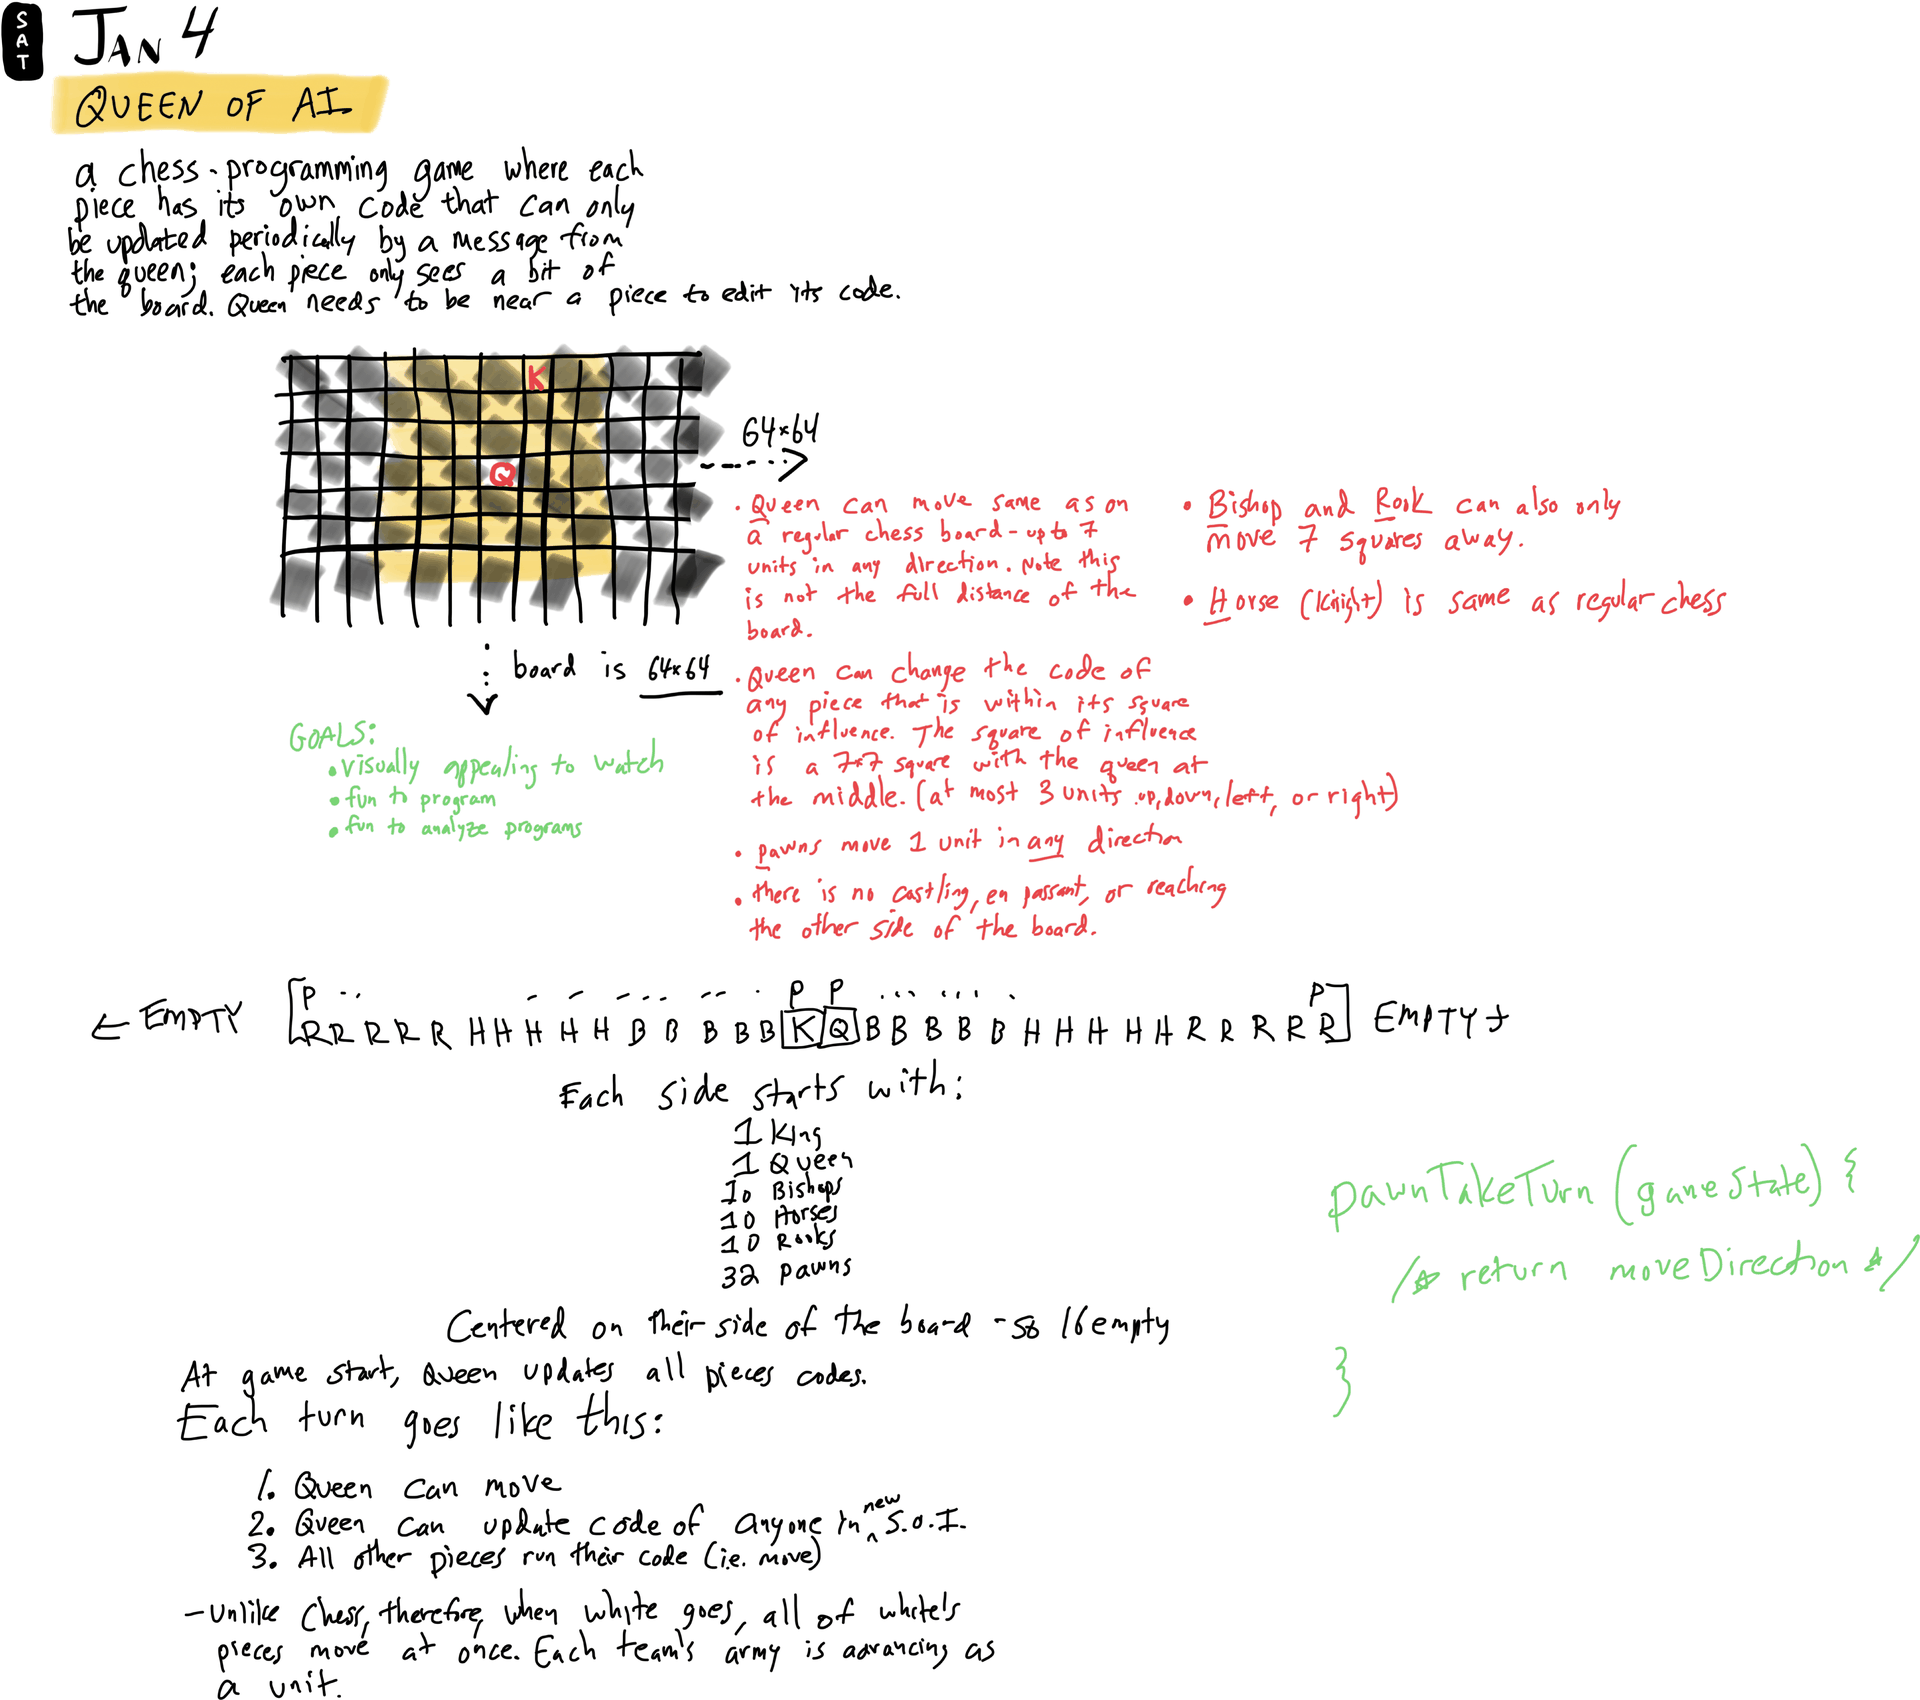 SAT
JAN 4
QUEEN OF AI
a chess-programming game where each
piece has its own code that can only
be updated periodically by a message from
the queen; each piece only sees a bit of
the board. Queen needs to be near a piece to edit its code.
K
Q
64×64
board is 64×64
GOALS:
• visually appealing to watch
• fun to program
• fun to analyze programs
• Queen can move same as on
a regular chess board - up to 7
units in any direction. Note this
is not the full distance of the
board.
• Queen can change the code of
any piece that is within its square
of influence. The square of influence
is a 7×7 square with the queen at
the middle. (at most 3 units up, down, left, or right)
• pawns move 1 unit in any direction
• there is no castling, en passant, or reaching
the other side of the board.
• Bishop and Rook can also only
move 7 squares away.
• Horse (Knight) is same as regular chess
P P P P
← EMPTY [R R R R R H H H H H B B B B B K Q B B B B B H H H H H R R R R R] EMPTY →
Each side starts with:
1 King
1 Queen
10 Bishops
10 Horses
10 Rooks
32 pawns
Centered on their side of the board - so 16 empty
At game start, Queen updates all pieces codes.
Each turn goes like this:
1. Queen can move
2. Queen can update code of anyone in new S.O.I.
3. All other pieces run their code (i.e. move)
- Unlike Chess, therefore, when white goes, all of white's
pieces move at once. Each team's army is advancing as
a unit.
pawnTakeTurn (gameState) {
/* return moveDirection */
}